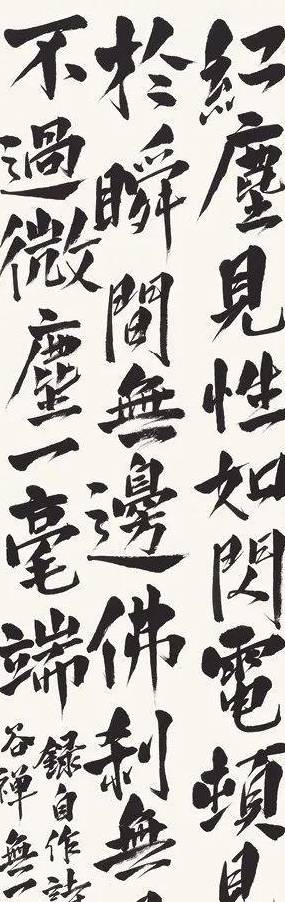 紅塵見性如閃電頓見
於瞬間無邊佛利無
不過微塵一毫端
錄自作詩
谷禪無一